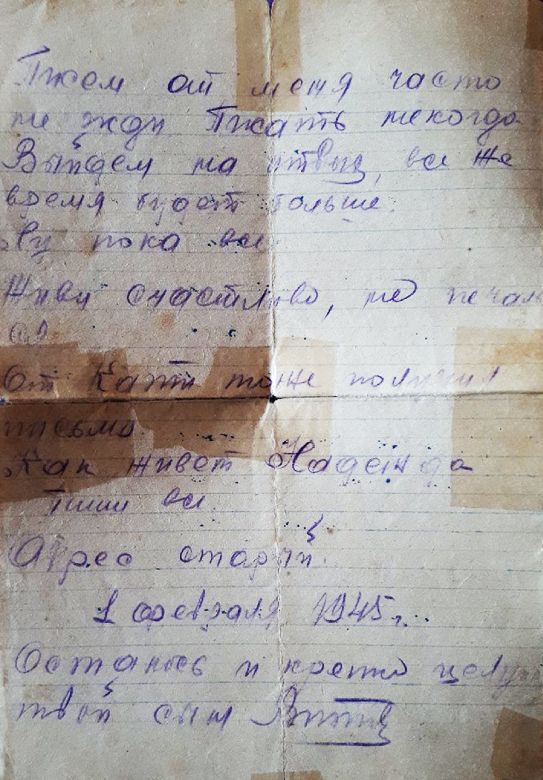 Писем от меня часто
не жди Писать некогда
Выйдем на отвых, все же
время будет больше.
Ну пока все
Живи счастливо, не печаль
ся
От Кати тоже получил
письмо
Как живет Надежда
пиши все
Адрес старый.
1 февраля 1945 г.
Остаюсь и крепко целую
твой сын